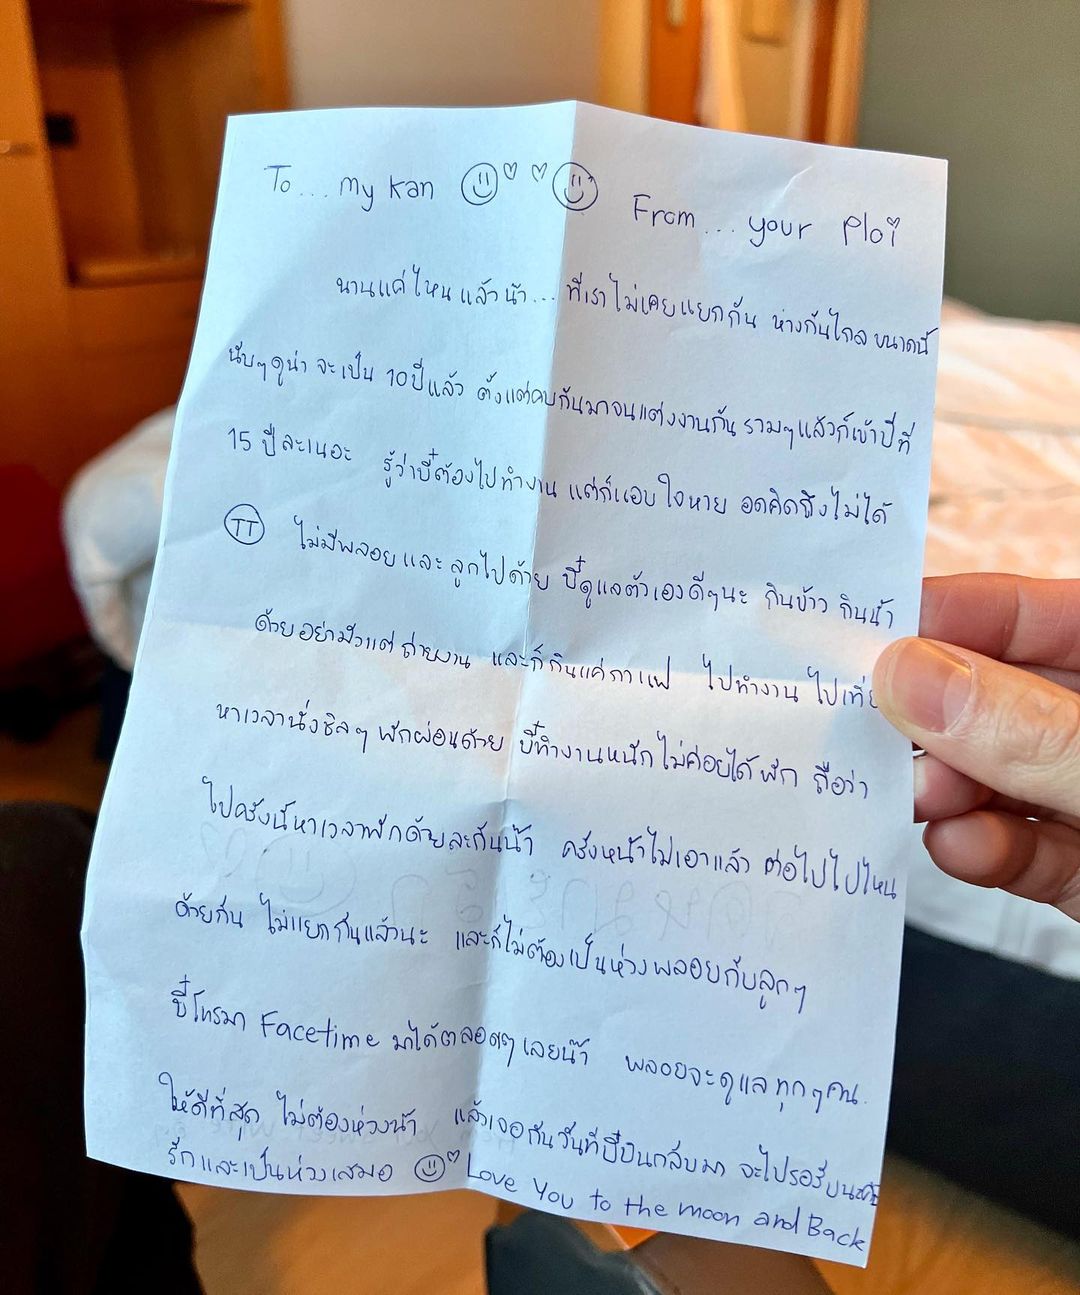 To... my Kan
From... your Ploi
นานแค่ไหนแล้วน้า... ที่เราไม่เคยแยกกัน ห่างกันไกลขนาดนี้
นับๆดูน่า จะเป็น 10ปีแล้ว ตั้งแต่คบกันมาจนแต่งงานกัน รวมๆแล้วก็เข้าปีที่
15 ปีละเนอะ รู้ว่าบี๋ต้องไปทำงาน แต่ก็แอบใจหาย อดคิดถึงไม่ได้
TT ไม่มีพลอยและลูกไปด้วย บี๋ดูแลตัวเองดีๆนะ กินข้าว กินน้ำ
ด้วยอย่ามัวแต่ถ่ายงาน และก็กินแค่กาแฟ ไปทำงาน ไปเที่ย
หาเวลานั่งชิลๆ พักผ่อนด้วย บี๋ทำงานหนักไม่ค่อยได้พัก ถือว่า
ไปครั้งนี้หาเวลาพักด้วยละกันน้า ครั้งหน้าไม่เอาแล้ว ต่อไปไปไหน
ด้วยกัน ไม่แยกกันแล้วนะ และก็ไม่ต้องเป็นห่วงพลอยกับลูกๆ
บี๋โทรมา Facetime มาได้ตลอดๆเลยน๊า พลอยจะดูแลทุกๆคน.
ให้ดีที่สุด ไม่ต้องห่วงน้า แล้วเจอกันวันที่บี๋บินกลับมา จะไปรอรับนะคะ
รักและเป็นห่วงเสมอ Love You to the moon and Back